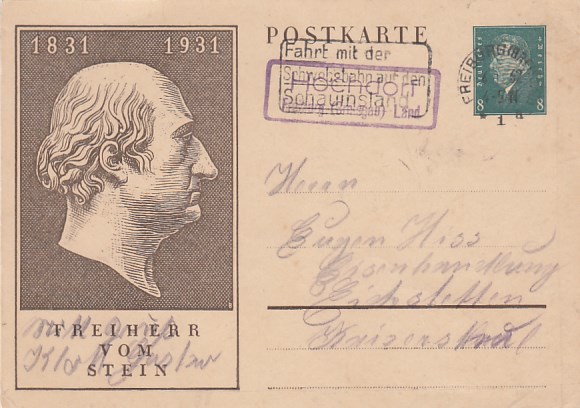 1831 1931
FREIHERR
VOM
STEIN
POSTKARTE
Fahrt mit der
Schwebebahn auf den
Schauinsland
Hochdorf
Land
FREIBURG
1
Deutsches Reich
8 8
Herrn
Eugen Hiss
Eisenhandlung
Eichstetten
Kaiserstuhl